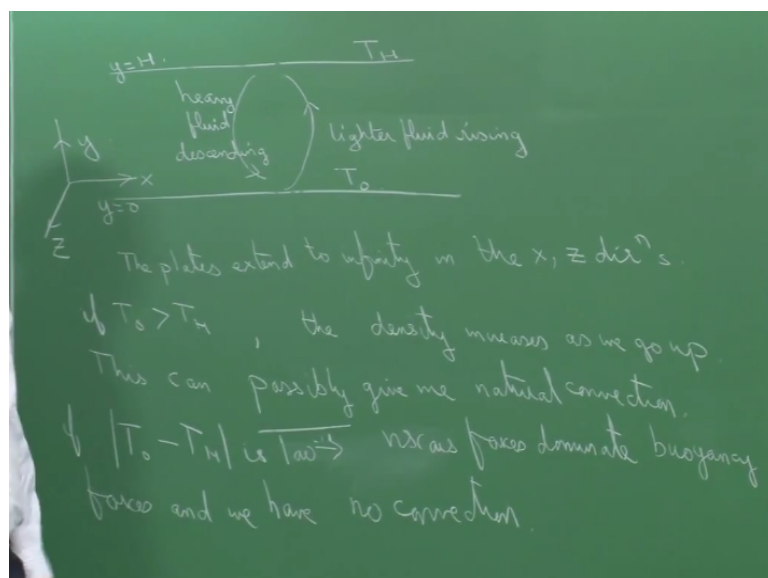 y=H.
T_H
heavy
fluid
descending
lighter fluid rising
y
x
T_0
y=0
z
The plates extend to infinity in the x, z dirⁿs.
if T_0 > T_H , the density increases as we go up
This can possibly give me natural convection.
if |T_0 - T_H| is low → viscous forces dominate buoyancy
forces and we have no convection.